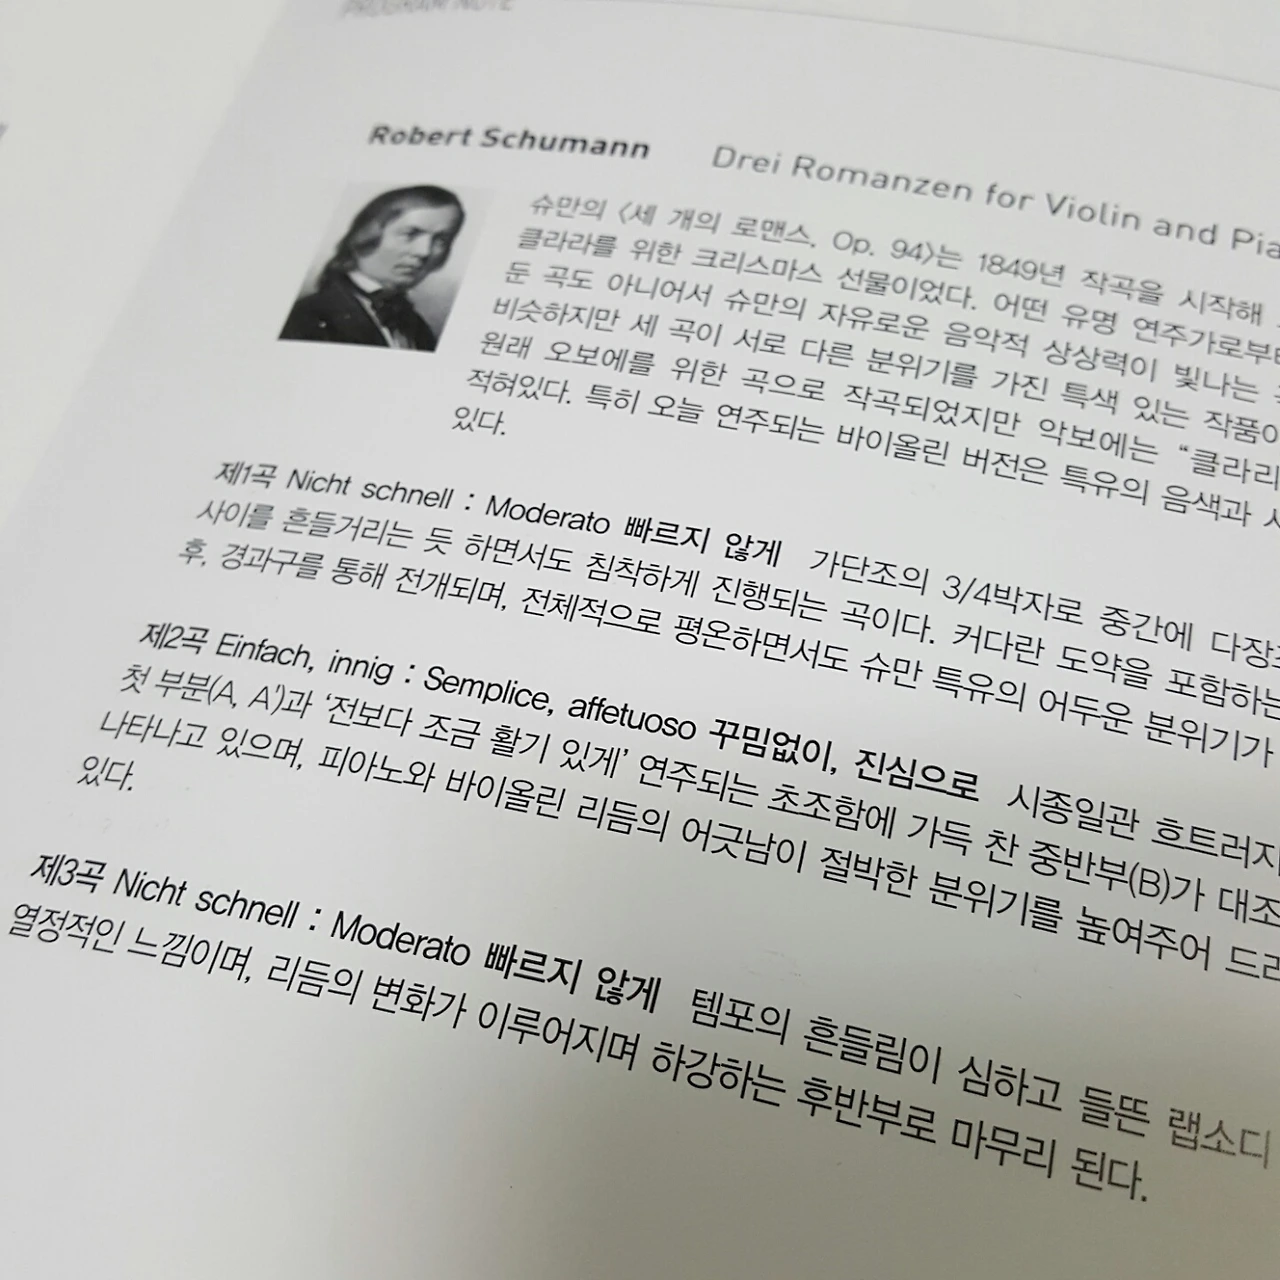 PROGRAM NOTE
Robert Schumann Drei Romanzen for Violin and
슈만의 〈세 개의 로맨스, Op. 94〉는 1849년 작곡을 시작해
클라라를 위한 크리스마스 선물이었다. 어떤 유명 연주가로부터
둔 곡도 아니어서 슈만의 자유로운 음악적 상상력이 빛나는
비슷하지만 세 곡이 서로 다른 분위기를 가진 특색 있는
원래 오보에를 위한 곡으로 작곡되었지만 악보에는
적혀있다. 특히 오늘 연주되는 바이올린 버전은 특유의 음색과
있다.
제1곡 Nicht schnell : Moderato 빠르지 않게 가단조의 3/4박자로 중간에
사이를 흔들거리는 듯 하면서도 침착하게 진행되는 곡이다. 커다란 도약을 포함하는
후, 경과구를 통해 전개되며, 전체적으로 평온하면서도 슈만 특유의 어두운 분위기가
제2곡 Einfach, innig : Semplice, affetuoso 꾸밈없이, 진심으로 시종일관
첫 부분(A, A')과 '전보다 조금 활기 있게' 연주되는 초조함에 가득 찬 중반부(B)가
나타나고 있으며, 피아노와 바이올린 리듬의 어긋남이 절박한 분위기를 높여주어
있다.
제3곡 Nicht schnell : Moderato 빠르지 않게 템포의 흔들림이 심하고 들뜬 랩소디
열정적인 느낌이며, 리듬의 변화가 이루어지며 하강하는 후반부로 마무리 된다.